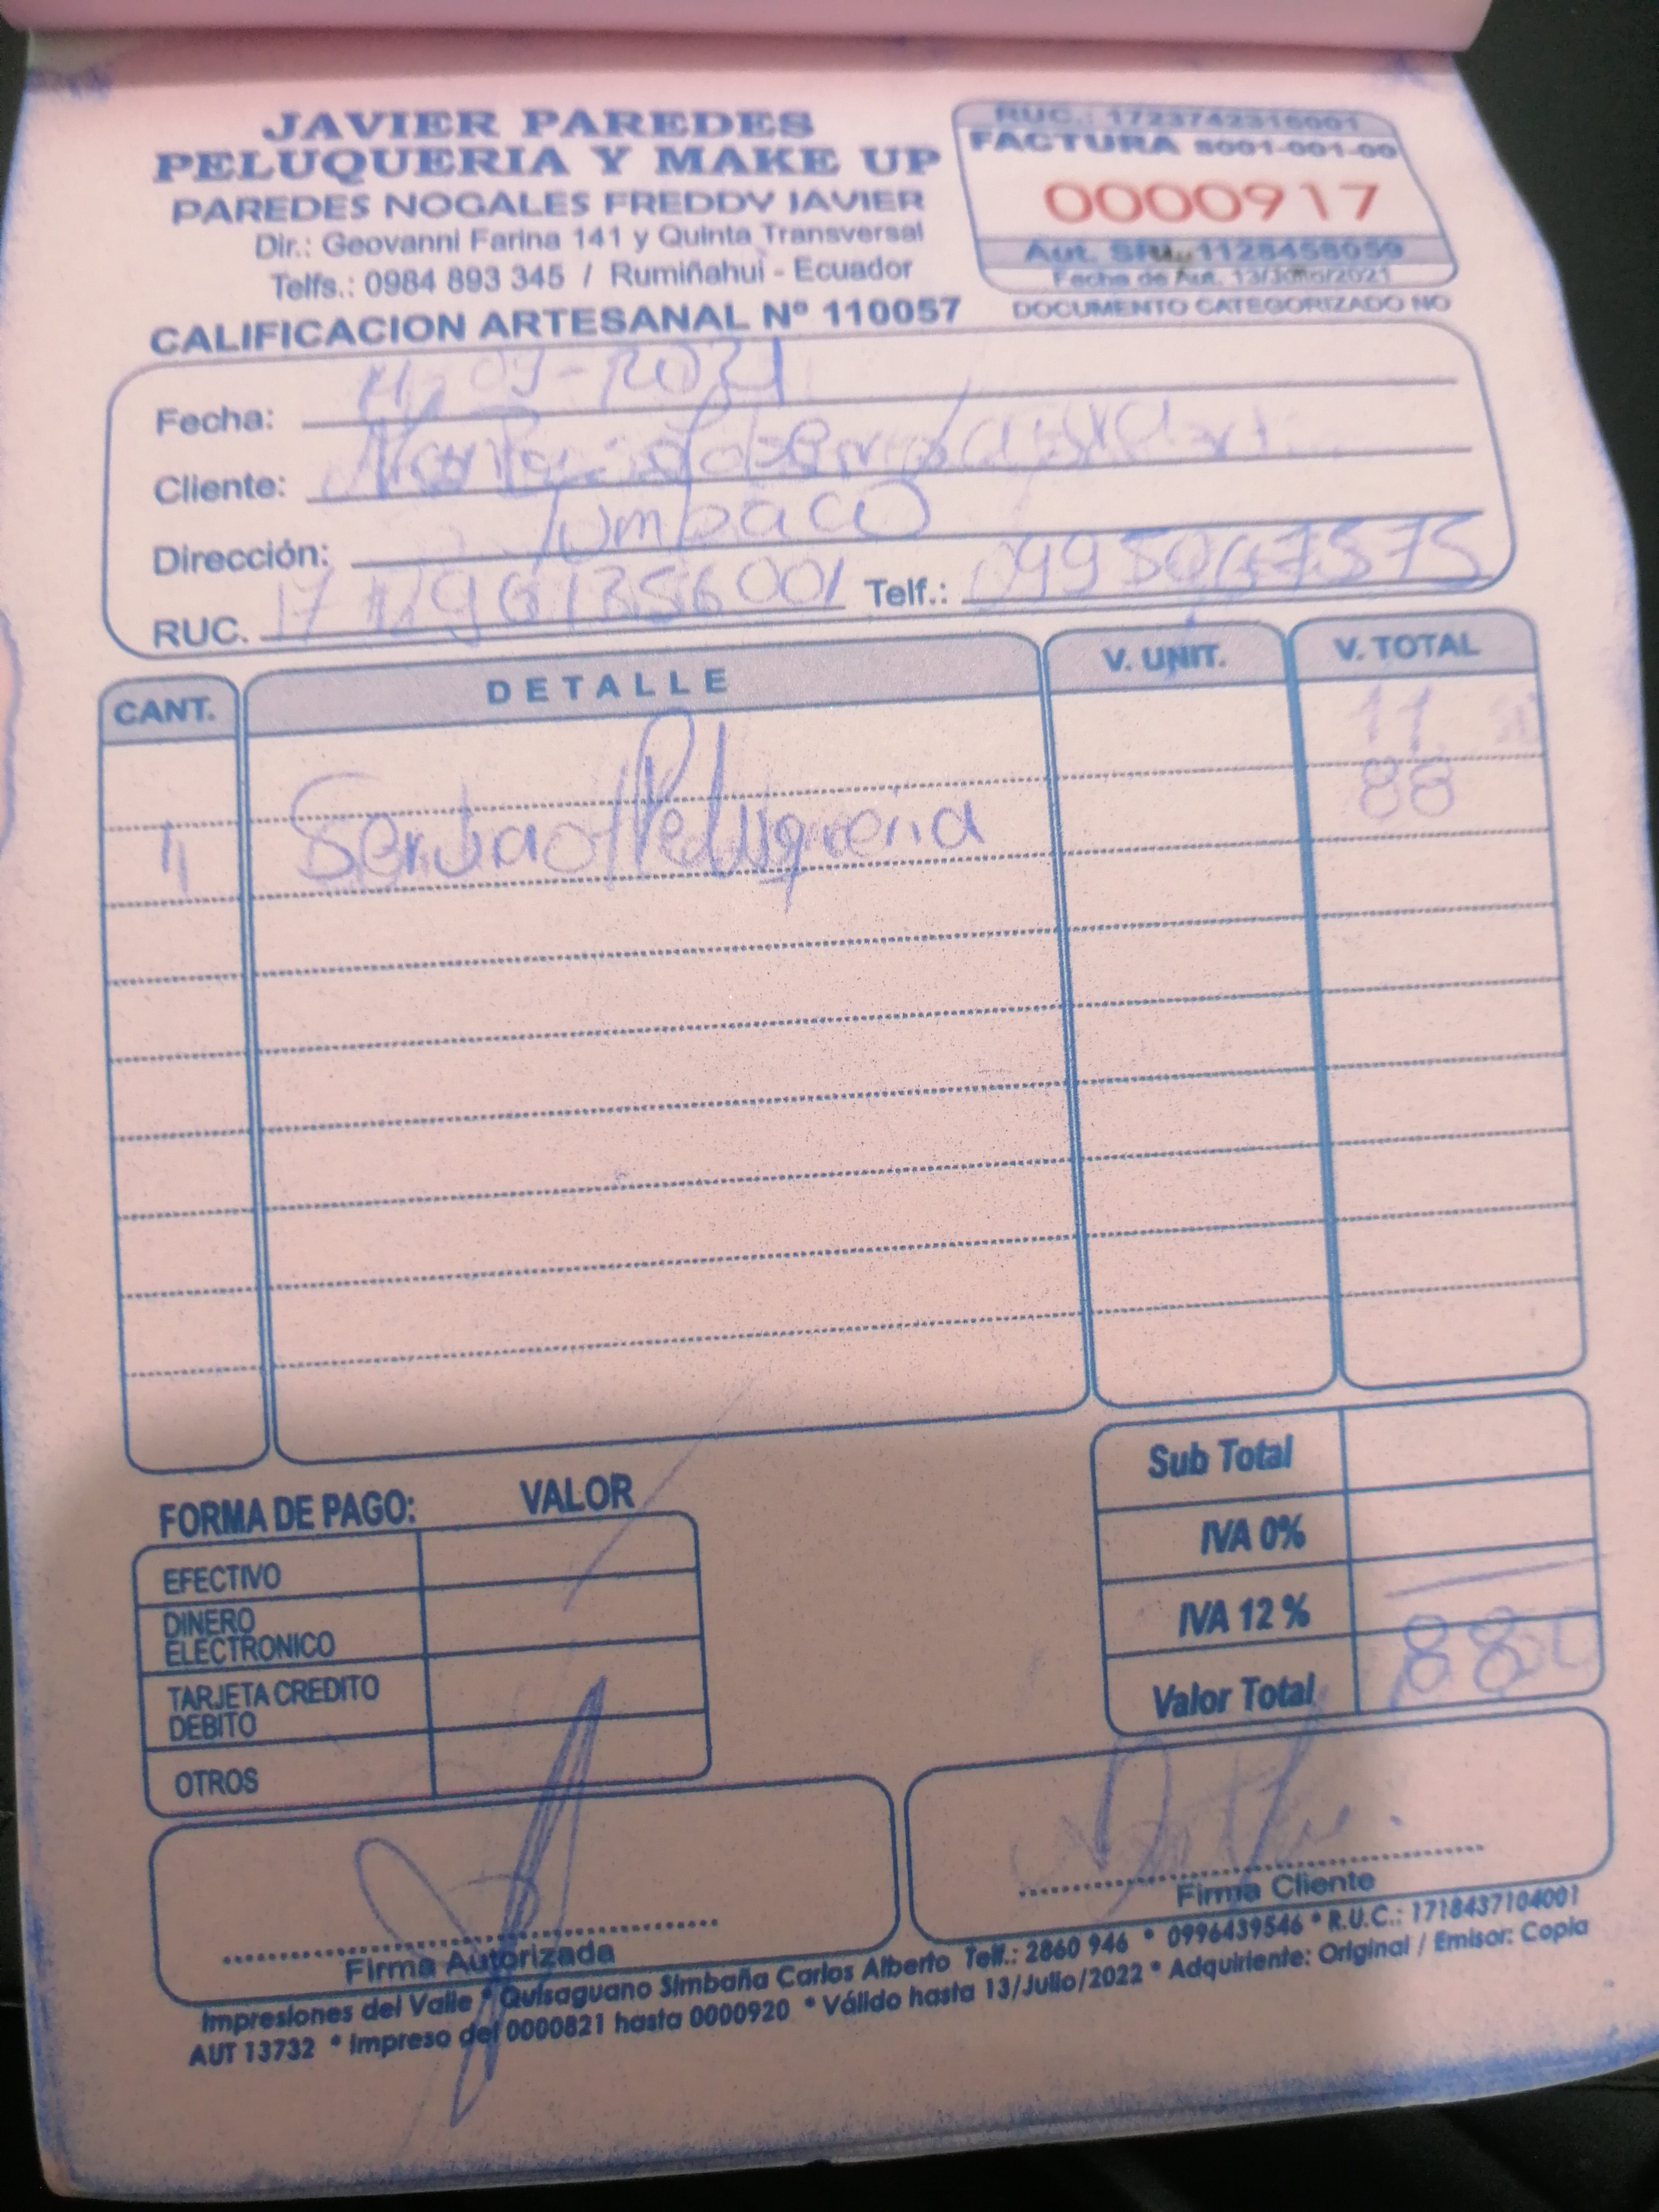 JAVIER PAREDES
PELUQUERIA Y MAKE UP
PAREDES NOGALES FREDDY JAVIER
Dir.: Geovanni Farina 141 y Quinta Transversal
Telfs.: 0984 893 345 / Rumiñahui - Ecuador
CALIFICACION ARTESANAL Nº 110057
RUC.: 1723742315001
FACTURA S001-001-00
0000917
Aut. SRI.: 1128458059
Fecha de Aut. 13/Julio/2021
DOCUMENTO CATEGORIZADO NO
Fecha: 11-09-2021
Cliente:
Dirección: Tumbaco
RUC. Telf.: 0995067575
CANT. DETALLE V. UNIT. V. TOTAL
11
88
1 Peluqueria
FORMA DE PAGO: VALOR
EFECTIVO
DINERO ELECTRONICO
TARJETA CREDITO DEBITO
OTROS
Sub Total
IVA 0%
IVA 12 %
Valor Total 88
Firma Autorizada
Firma Cliente
Impresiones del Valle * Quisaguano Simbaña Carlos Alberto Telf.: 2860 946 * 0996439546 * R.U.C.: 1718437104001
AUT 13732 * Impreso del 0000821 hasta 0000920 * Válido hasta 13/Julio/2022 * Adquiriente: Original / Emisor: Copia